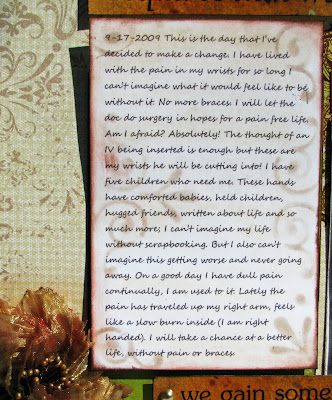 9-17-2009 This is the day that I've
decided to make a change. I have lived
with the pain in my wrists for so long I
can't imagine what it would feel like to be
without it. No more braces. I will let the
doc do surgery in hopes for a pain free life.
Am I afraid? Absolutely! The thought of an
IV being inserted is enough but these are
my wrists he will be cutting into! I have
five children who need me. These hands
have comforted babies, held children,
hugged friends, written about life and so
much more; I can't imagine my life
without scrapbooking. But I also can't
imagine this getting worse and never going
away. On a good day I have dull pain
continually, I am used to it. Lately the
pain has traveled up my right arm, feels
like a slow burn inside (I am right
handed). I will take a chance at a better
life, without pain or braces.
we gain some